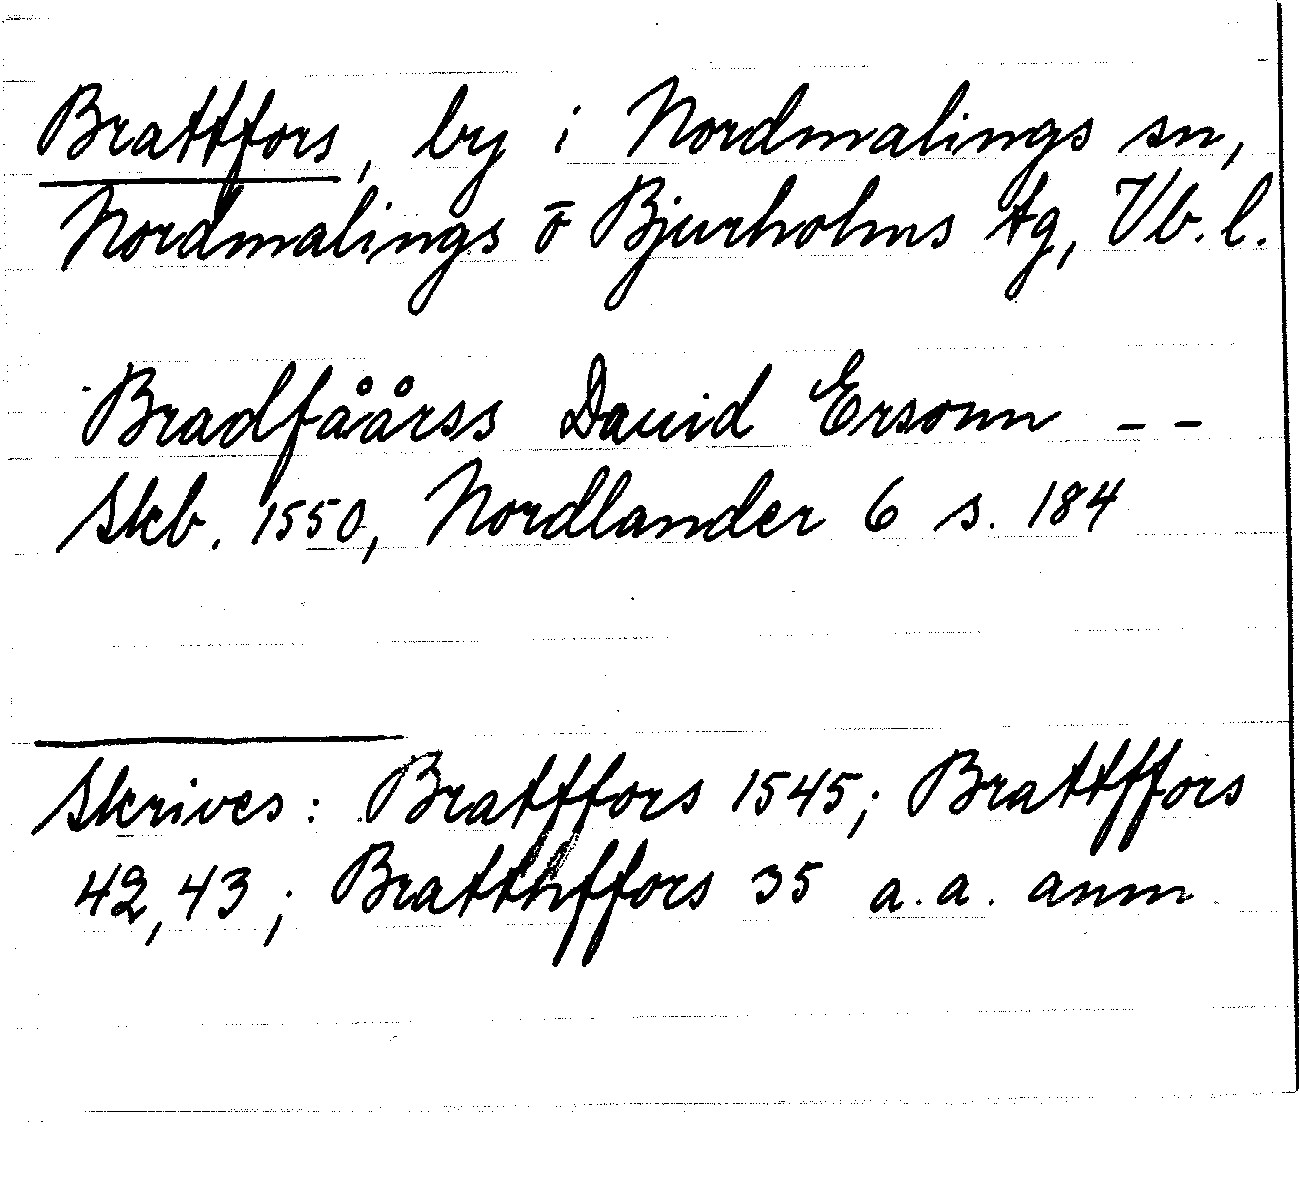 Brattfors, by i Nordmalings sn,
Nordmalings o Bjurholms tg, Vb. l.
Bradfåårss Dauid Ersonn - -
Skb. 1550, Nordlander 6 s. 184
Skrives: Bratffors 1545; Brattffors
42, 43; Bratthffors 35 a. a. anm